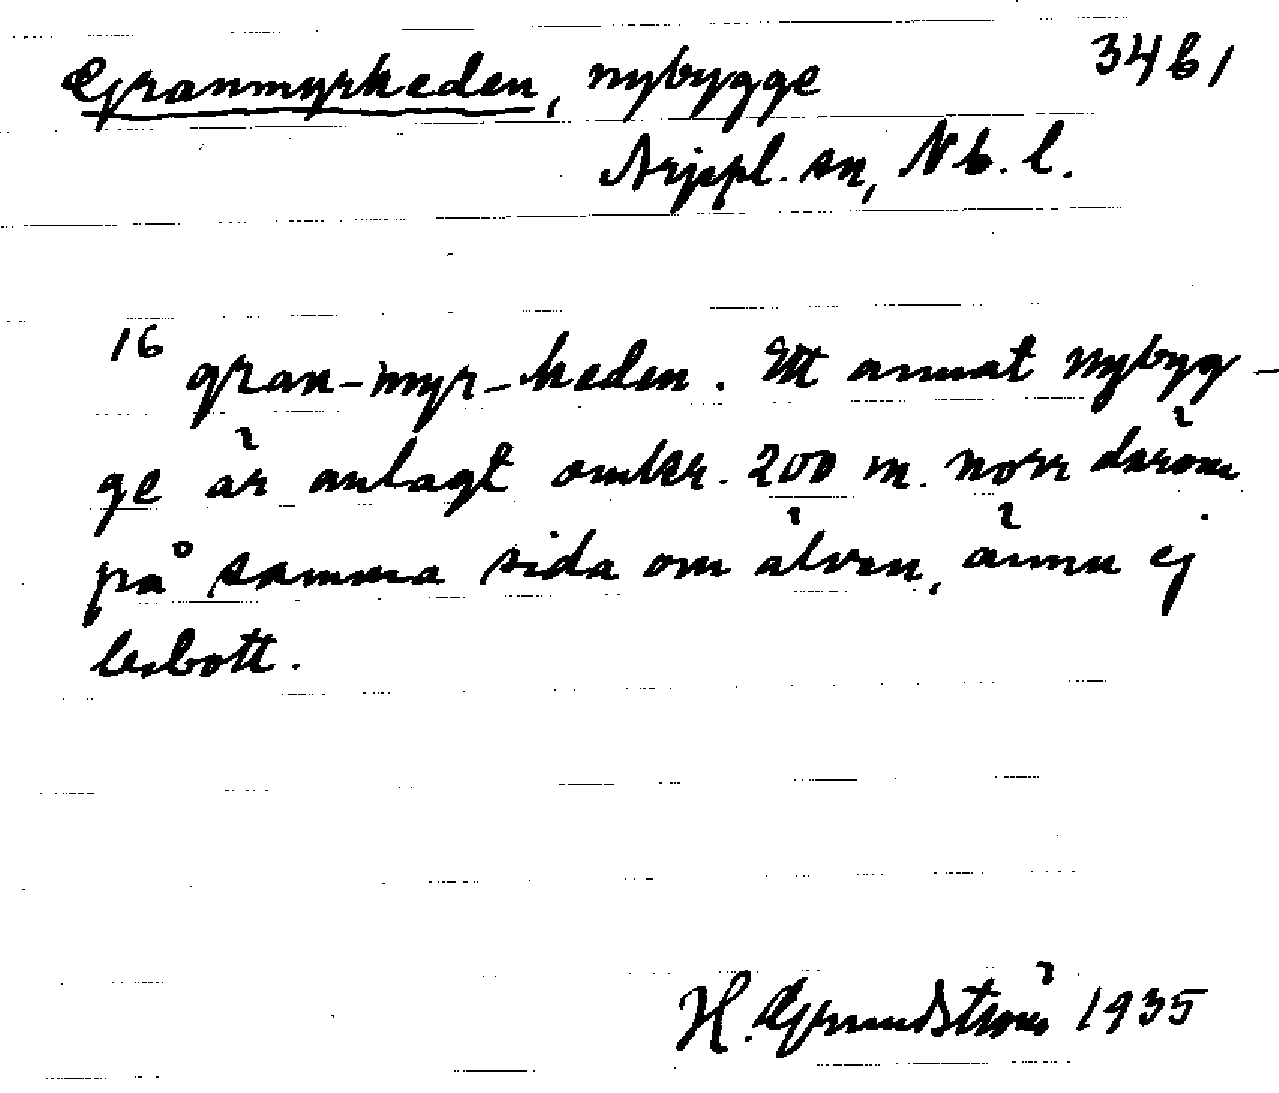 Granmyrheden, nybygge 34 b 1
Arjepl. sn, Nb. l.
16 gran-myr-heden. Ett annat nybyg-
ge är anlagt omkr. 200 m. norr därom
på samma sida om älven, ännu ej
bebott.
H. Grundström 1935